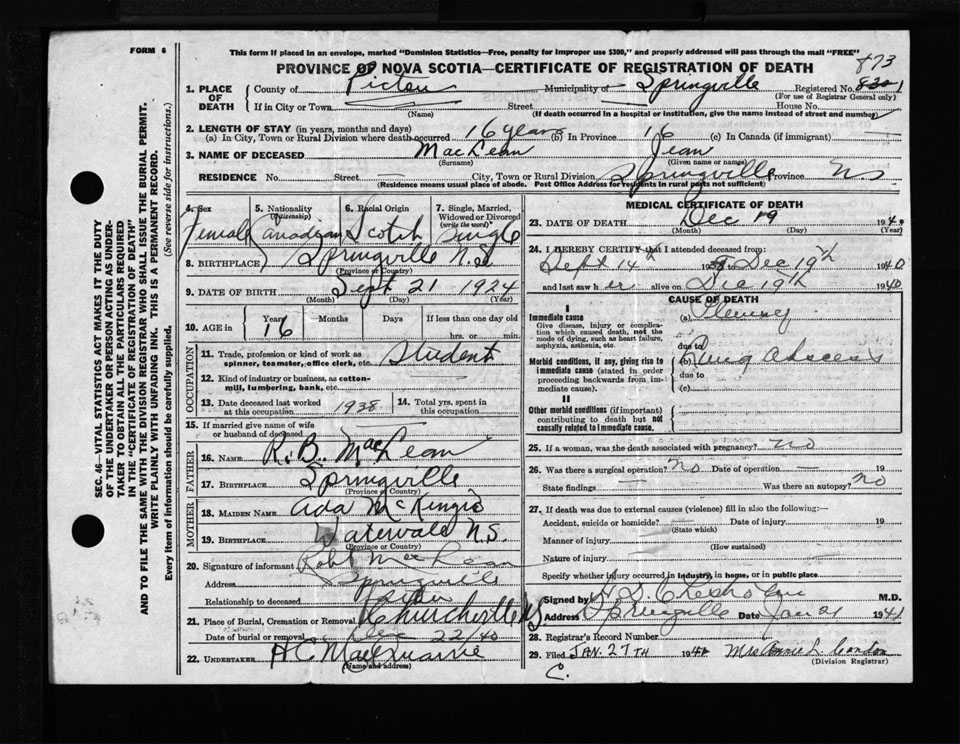 FORM 6
This form if placed in an envelope, marked "Dominion Statistics—Free, penalty for improper use $300," and properly addressed will pass through the mail "FREE"
PROVINCE OF NOVA SCOTIA—CERTIFICATE OF REGISTRATION OF DEATH
873
1. PLACE OF DEATH
County of Pictou Municipality of Springville Registered No.
(For use of Registrar General only)
If in City or Town Street House No.
(Name) (If death occurred in a hospital or institution, give the name instead of street and number)
2. LENGTH OF STAY (in years, months and days)
(a) In City, Town or Rural Division where death occurred 16 years (b) In Province 16 (c) In Canada (if immigrant)
3. NAME OF DECEASED MacLean Jean
(Surname) (Given name or names)
RESIDENCE No. Street City, Town or Rural Division Springville Province N.S.
(Residence means usual place of abode. Post Office Address for residents in rural parts not sufficient)
4. Sex Female
5. Nationality (Citizenship) Canadian
6. Racial Origin Scotch
7. Single, Married, Widowed or Divorced (write the word) Single
8. BIRTHPLACE Springville N.S.
(Province or Country)
9. DATE OF BIRTH Sept 21 1924
(Month) (Day) (Year)
10. AGE in Years 16 Months Days If less than one day old
hrs. or min.
OCCUPATION
11. Trade, profession or kind of work as spinner, teamster, office clerk, etc. Student
12. Kind of industry or business, as cotton-mill, lumbering, bank, etc.
13. Date deceased last worked at this occupation 1938 14. Total yrs. spent in this occupation
15. If married give name of wife or husband of deceased
FATHER
16. NAME R.B. MacLean
17. BIRTHPLACE Springville
(Province or Country)
MOTHER
18. MAIDEN NAME Ada McKenzie
19. BIRTHPLACE Watervale N.S.
(Province or Country)
20. Signature of informant Robt MacLean
Address Springville
Relationship to deceased
21. Place of Burial, Cremation or Removal Churchville NS
Date of burial or removal Dec 22/40
22. UNDERTAKER
(Name and address)
MEDICAL CERTIFICATE OF DEATH
23. DATE OF DEATH Dec 19 1940
(Month) (Day) (Year)
24. I HEREBY CERTIFY that I attended deceased from:
Sept 14th to Dec 19th 1940
and last saw her alive on Dec 19th 1940
CAUSE OF DEATH
I
Immediate cause (a)
Give disease, injury or complication which caused death, not the mode of dying, such as heart failure, asphyxia, asthenia, etc.
due to
Morbid conditions, if any, giving rise to immediate cause (stated in order proceeding backwards from immediate cause). (b) Lung Abscess
due to
(c)
II
Other morbid conditions (if important) contributing to death but not causally related to immediate cause.
25. If a woman, was the death associated with pregnancy? no
26. Was there a surgical operation? No Date of operation 19
State findings Was there an autopsy? No
27. If death was due to external causes (violence) fill in also the following:—
Accident, suicide or homicide? Date of injury 19
(State which)
Manner of injury
(How sustained)
Nature of injury
Specify whether injury occurred in industry, in home, or in public place
Signed by M.D.
Address Springville Date Jan 21 1941
28. Registrar's Record Number
29. Filed JAN. 27TH 194 Mrs Annie L.
(Division Registrar)
C.
SEC. 46—VITAL STATISTICS ACT MAKES IT THE DUTY OF THE UNDERTAKER OR PERSON ACTING AS UNDERTAKER TO OBTAIN ALL THE PARTICULARS REQUIRED IN THE "CERTIFICATE OF REGISTRATION OF DEATH"
AND TO FILE THE SAME WITH THE DIVISION REGISTRAR WHO SHALL ISSUE THE BURIAL PERMIT.
WRITE PLAINLY WITH UNFADING INK. THIS IS A PERMANENT RECORD.
Every item of information should be carefully supplied. (See reverse side for instructions.)